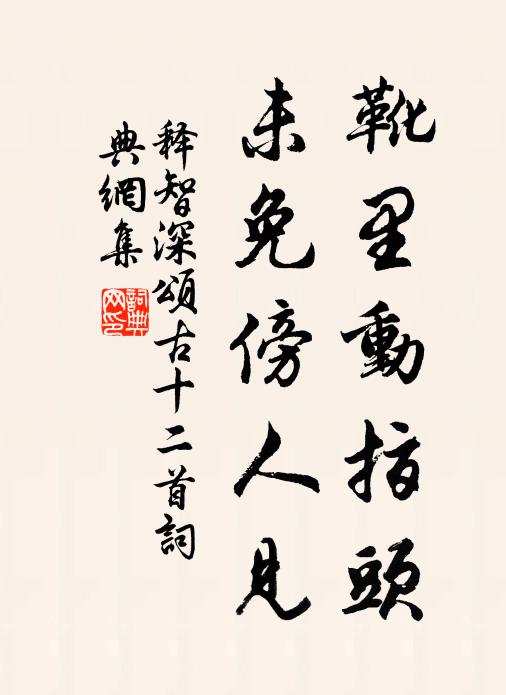 靴里動指頭
未免傍人見
释智深頌古十二首詞
典網集
詞典
网印